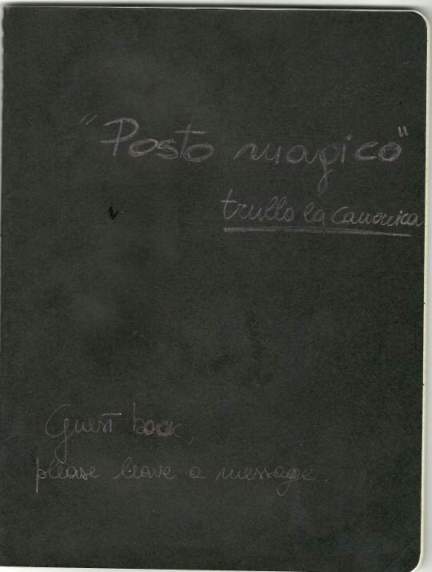 "Posto magico"
trullo la canonica
Guest book,
please leave a message.